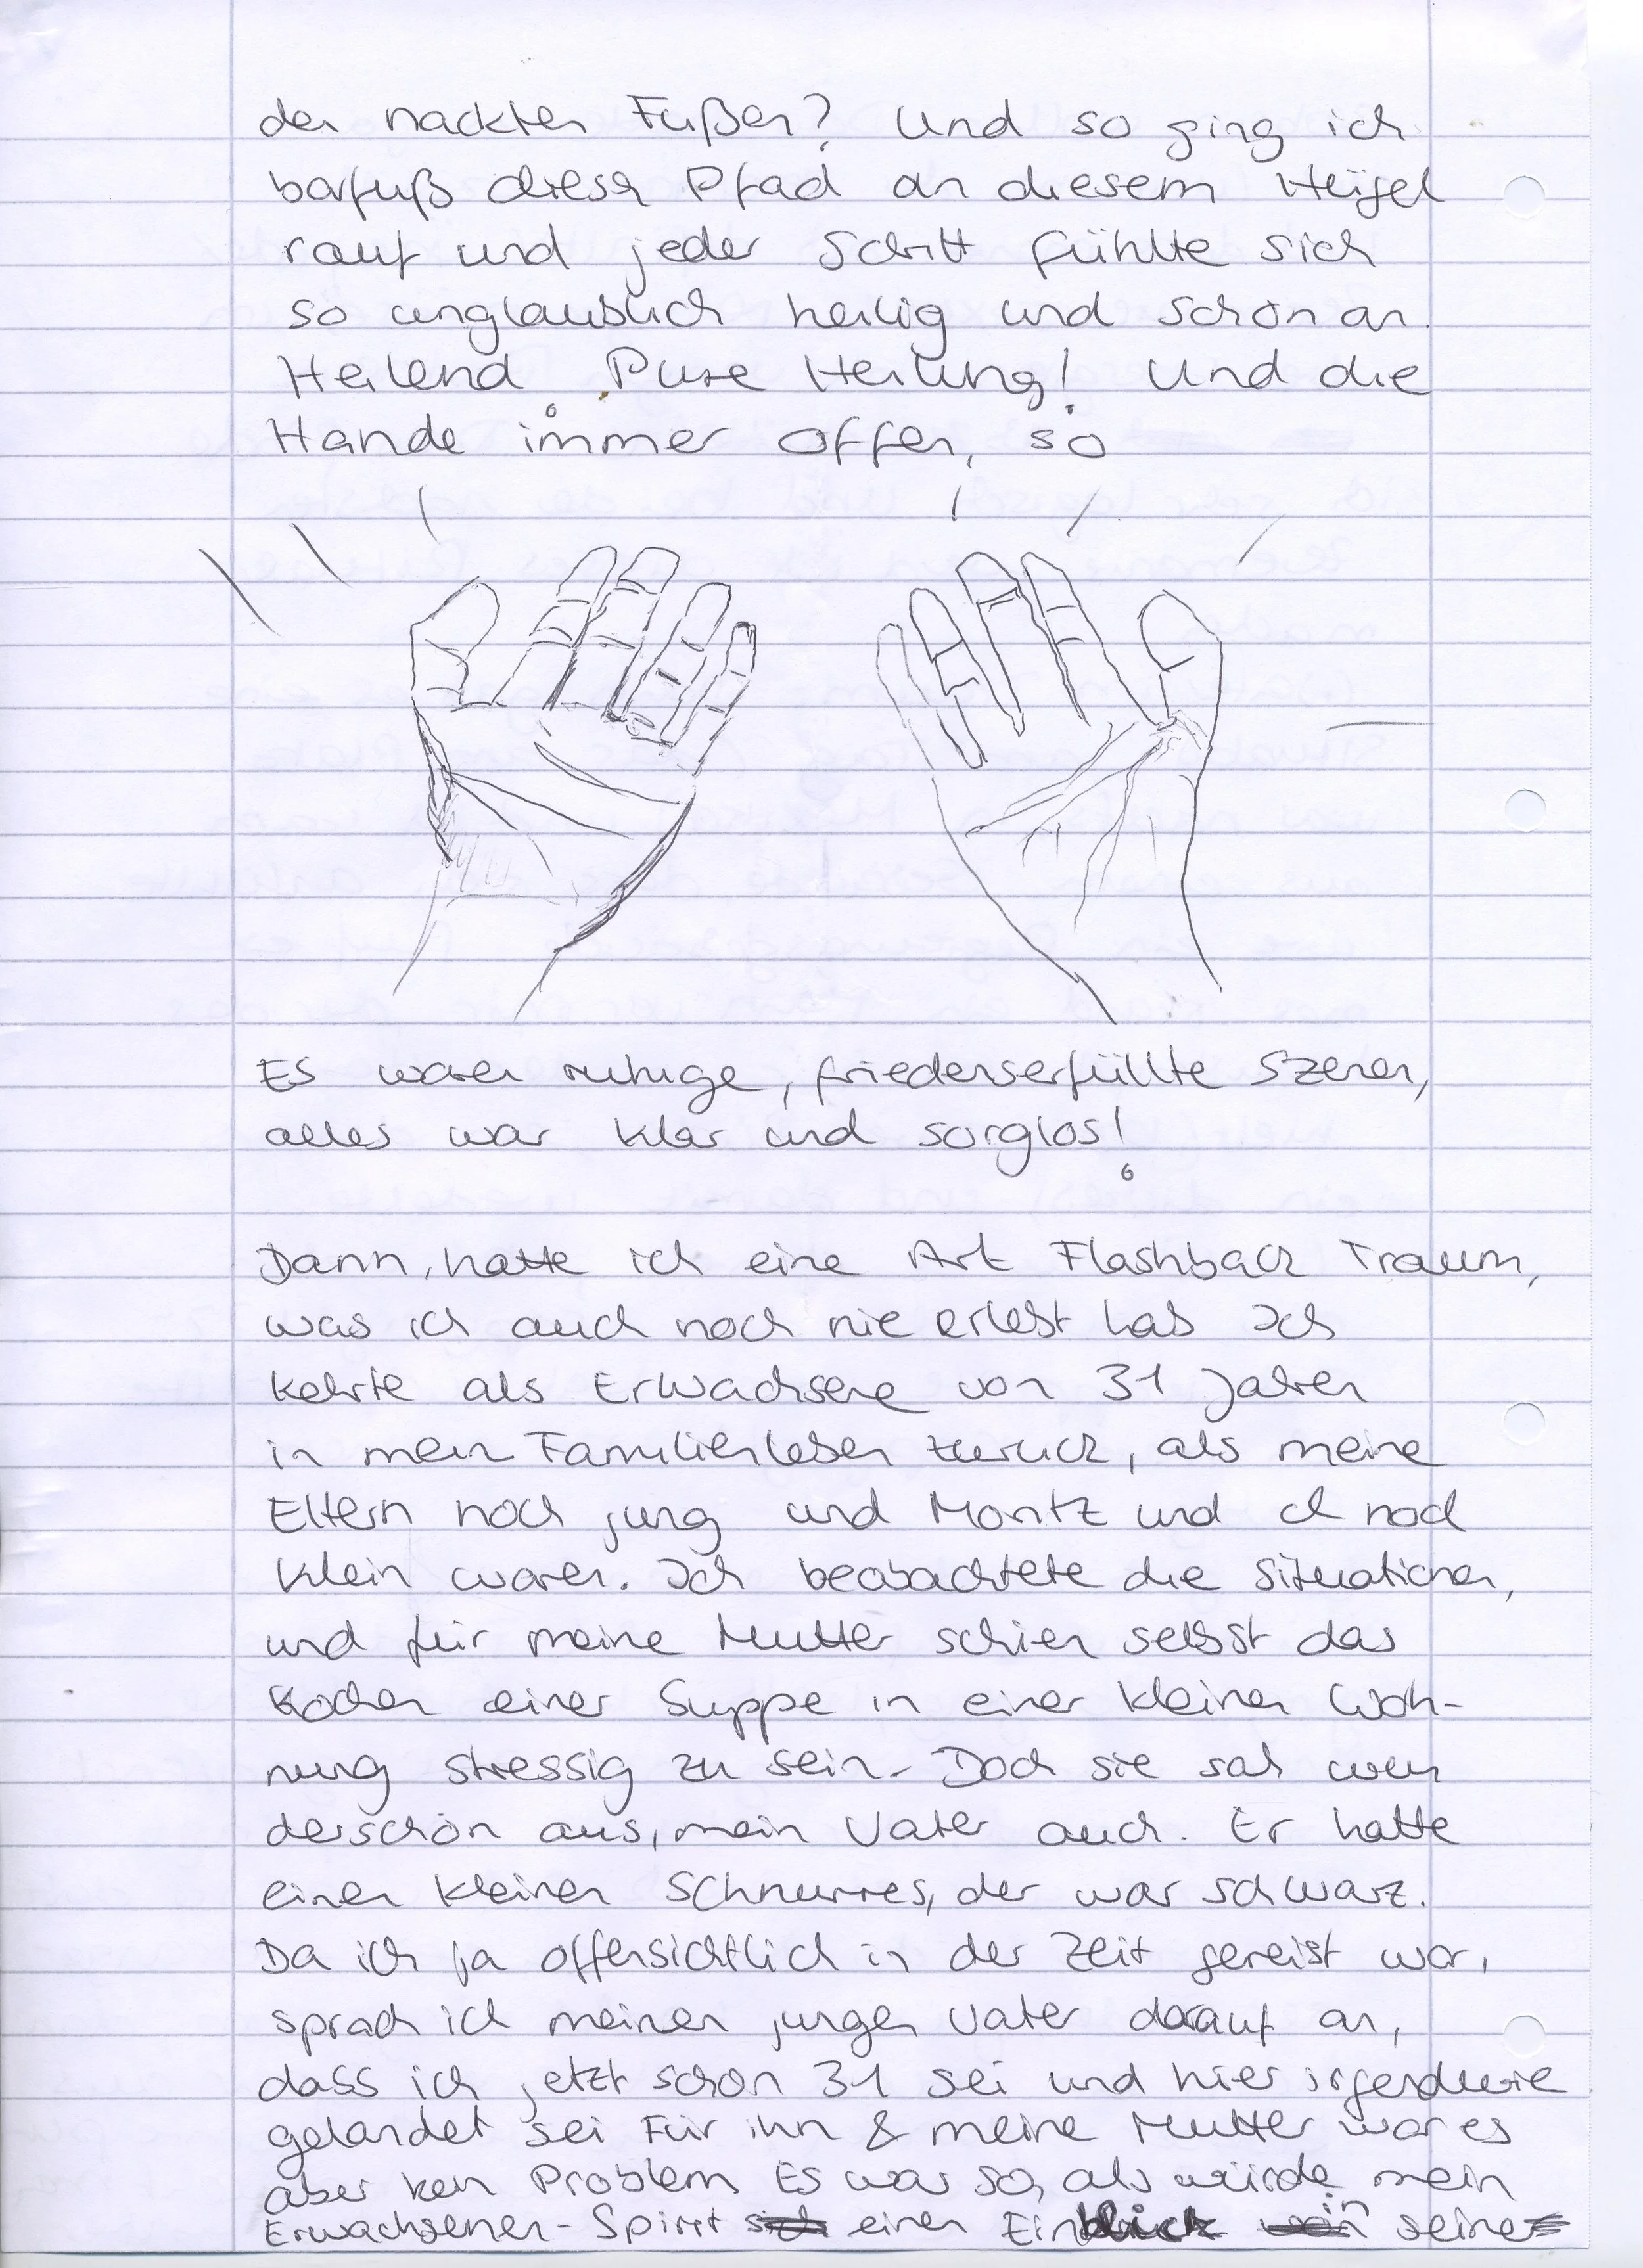 den nackten Füßen? Und so ging ich
barfuß diesen Pfad an diesem Hügel
rauf und jeder Schritt fühlte sich
so unglaublich heilig und schön an.
Heilend. Pure Heilung! Und die
Hände immer offen, so
Es waren ruhige, friedenserfüllte Szenen,
alles war klar und sorglos!
Dann, hatte ich eine Art Flashback Traum,
was ich auch noch nie erlebt hab Ich
kehrte als Erwachsene von 31 Jahren
in mein Familienleben zurück, als meine
Eltern noch jung und Moritz und ich noch
klein waren. Ich beobachtete die Situationen,
und für meine Mutter schien selbst das
Kochen einer Suppe in einer kleinen Woh-
nung stressig zu sein. Doch sie sah wun
derschön aus, mein Vater auch. Er hatte
einen kleinen Schnurres, der war schwarz.
Da ich ja offensichtlich in der Zeit gereist war,
sprach ich meinen jungen Vater darauf an,
dass ich jetzt schon 31 sei und hier irgendwie
gelandet sei Für ihn & meine Mutter war es
aber kein Problem Es war so, als würde mein
Erwachsenen-Spirit einen Einblick in seine